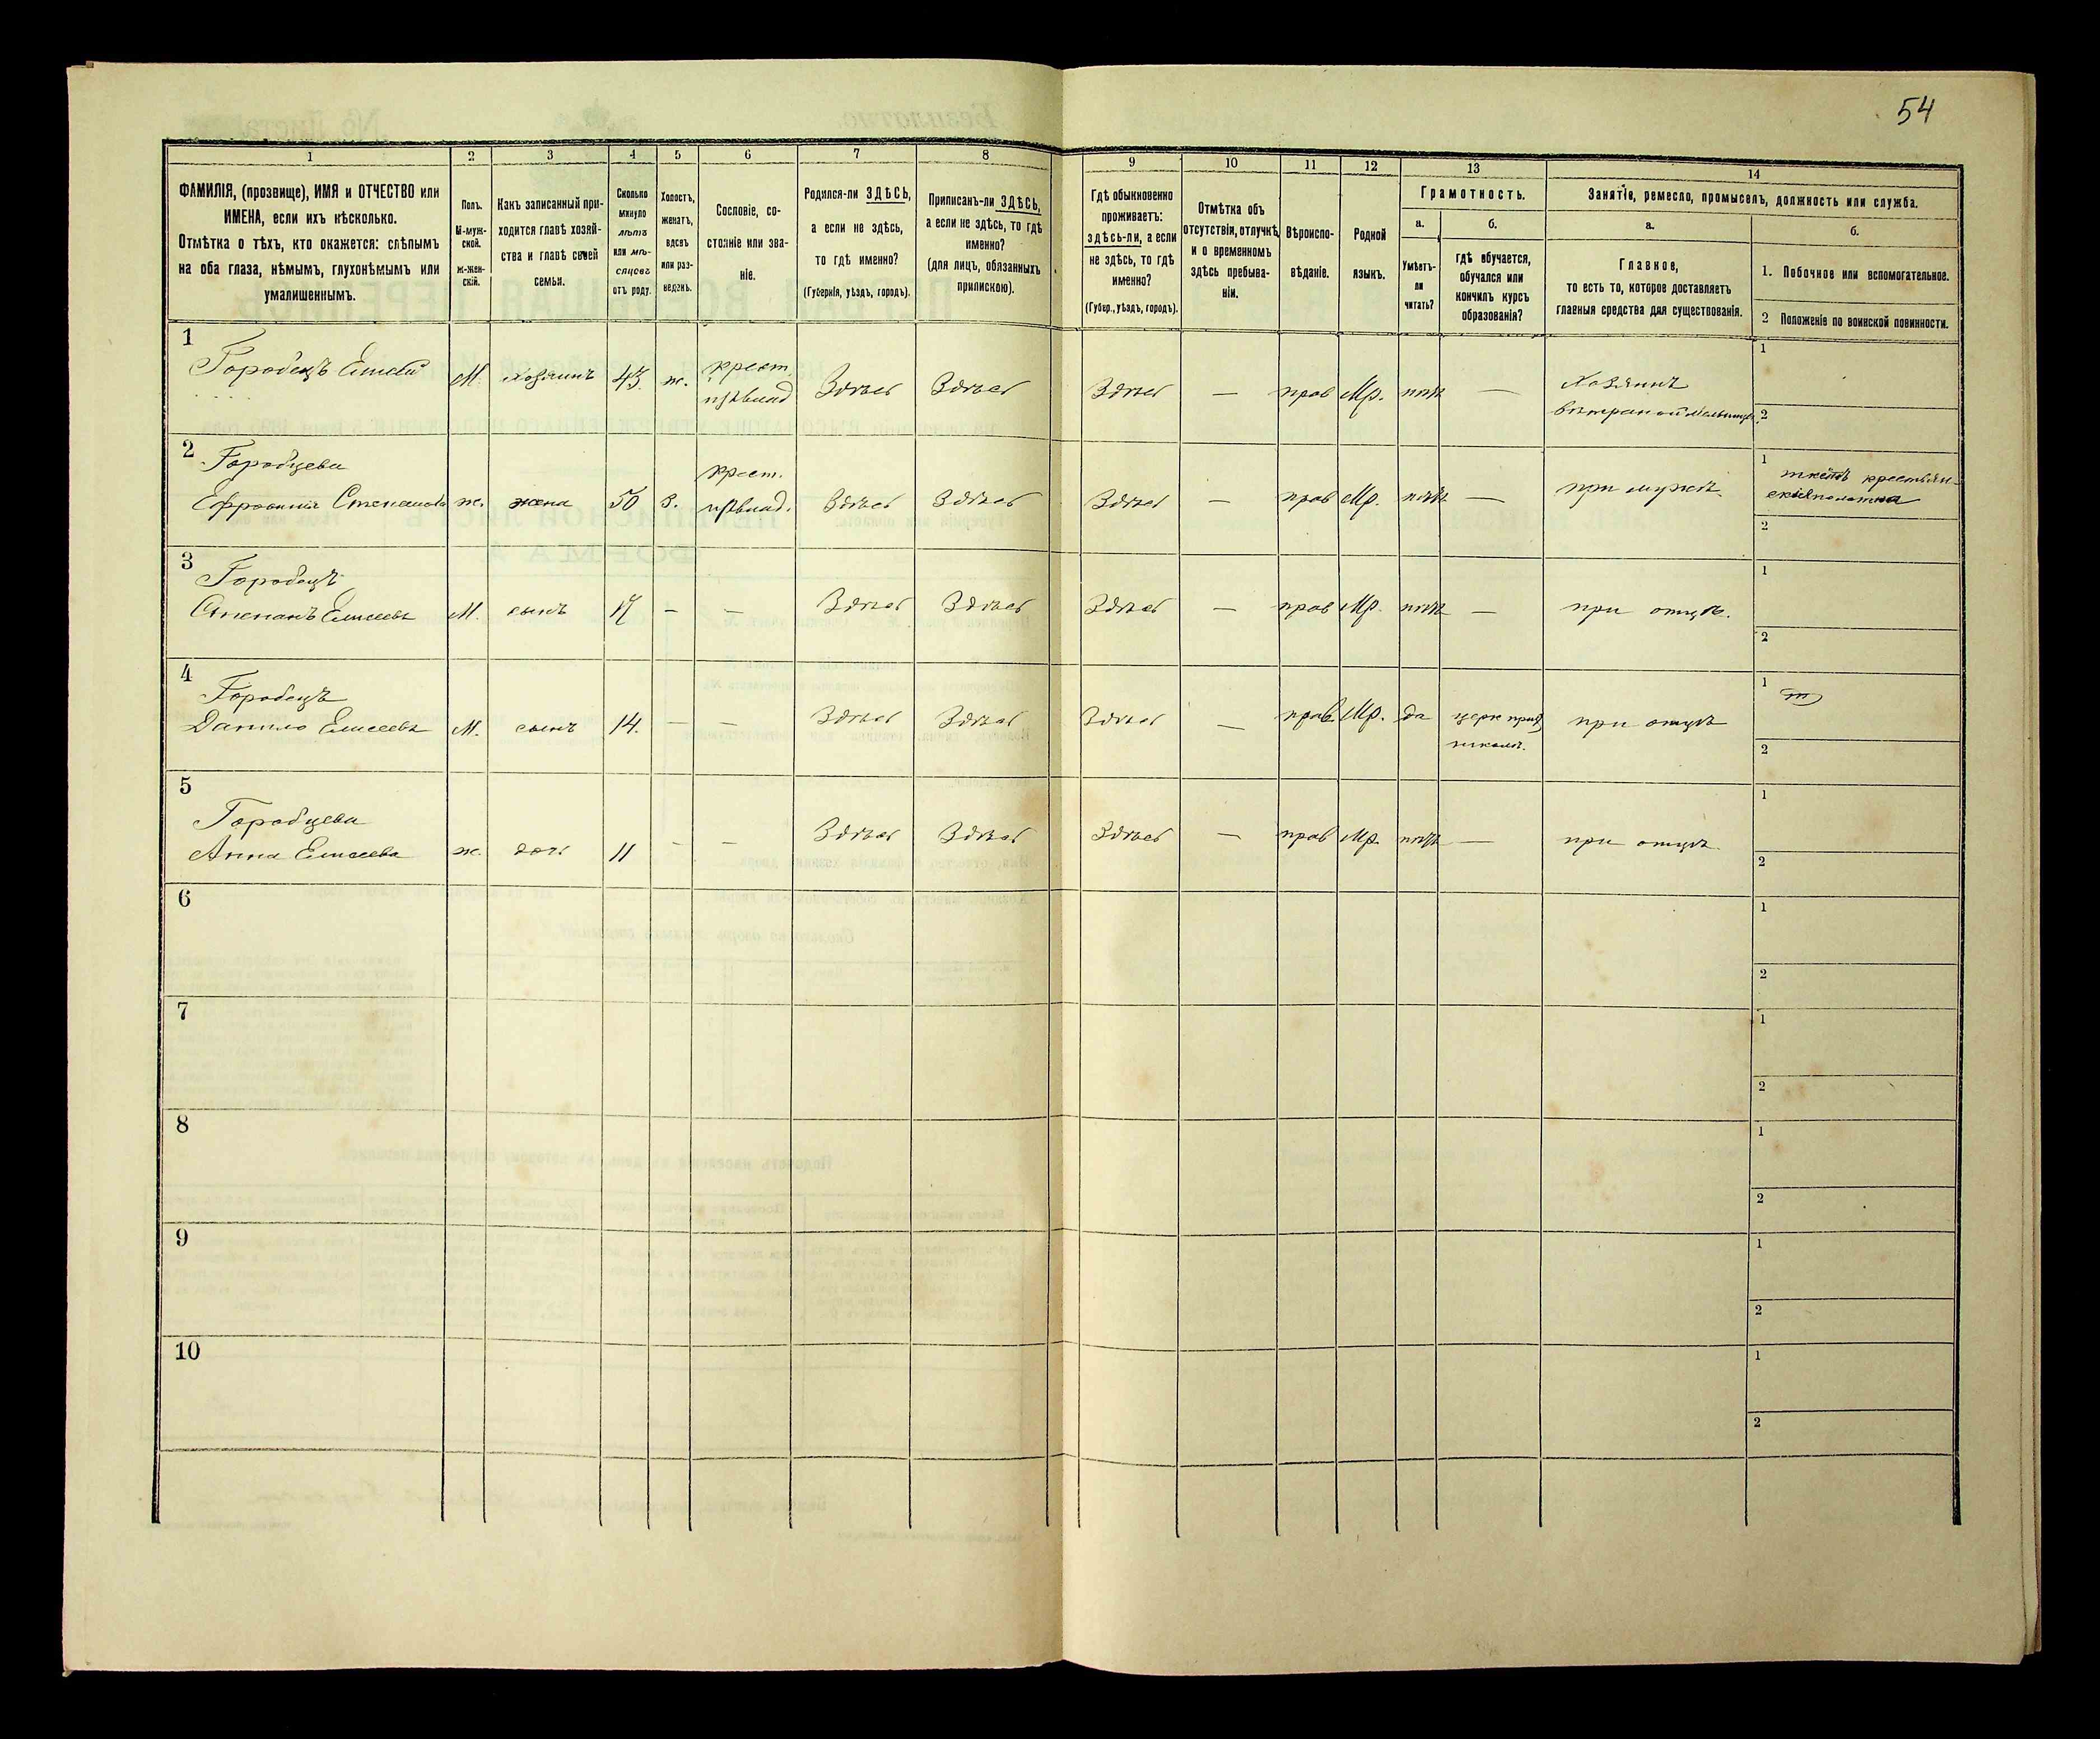 54
1
2
3
4
5
6
7
8
9
10
11
12
13
14
ФАМИЛІЯ, (прозвище), ИМЯ и ОТЧЕСТВО или
ИМЕНА, если ихъ нѣсколько.
Отмѣтка о тѣхъ, кто окажется: слѣпымъ
на оба глаза, нѣмымъ, глухонѣмымъ или
умалишеннымъ.
Полъ.
М-муж-
ской.
Ж-жен-
скій.
Какъ записанный при-
ходится главѣ хозяй-
ства и главѣ своей
семьи.
Сколько
минуло
лѣтъ
или мѣ-
сяцовъ
отъ роду.
Холостъ,
женатъ,
вдовъ
или раз-
веденъ.
Сословіе, со-
стояніе или зва-
ніе.
Родился-ли ЗДѢСЬ,
а если не здѣсь,
то гдѣ именно?
(Губернія, уѣздъ, городъ).
Приписанъ-ли ЗДѢСЬ,
а если не здѣсь, то гдѣ
именно?
(для лицъ, обязанныхъ
припискою).
Гдѣ обыкновенно
проживаетъ:
здѣсь-ли, а если
не здѣсь, то гдѣ
именно?
(Губер., уѣздъ, городъ).
Отмѣтка объ
отсутствіи, отлучкѣ
и о временномъ
здѣсь пребыва-
ніи.
Вѣроиспо-
вѣданіе.
Родной
языкъ.
Грамотность.
а.
Умѣетъ-
ли
читать?
б.
гдѣ обучается,
обучался или
кончилъ курсъ
образованія?
Занятіе, ремесло, промыселъ, должность или служба.
а.
Главное,
то есть то, которое доставляетъ
главныя средства для существованія.
б.
1. Побочное или вспомогательное.
2 Положеніе по воинской повинности.
1
Городецъ Елисей М. хозяинъ 43 ж. крест. Здѣсь Здѣсь Здѣсь — прав Мр. нѣтъ — Хозяинъ
вѣтряной мельницы
1
2
2
Городцева
Ефросинія Степанова ж. жена 50 З. крест. Здѣсь Здѣсь Здѣсь — прав Мр. нѣтъ — при мужѣ.
1 крестьян-
полотна
2
3
Городецъ
Степанъ Елисеевъ М. сынъ 17 — — Здѣсь Здѣсь Здѣсь — прав Мр. нѣтъ — при отцѣ.
1
2
4
Городецъ
Данило Елисеевъ М. сынъ 14. — — Здѣсь Здѣсь Здѣсь — прав. Мр. да церк прих
школѣ. при отцѣ
1
2
5
Городцева
Анна Елисеева ж. дочь 11 — — Здѣсь Здѣсь Здѣсь — прав Мр. нѣтъ — при отцѣ.
1
2
6
1
2
7
1
2
8
1
2
9
1
2
10
1
2